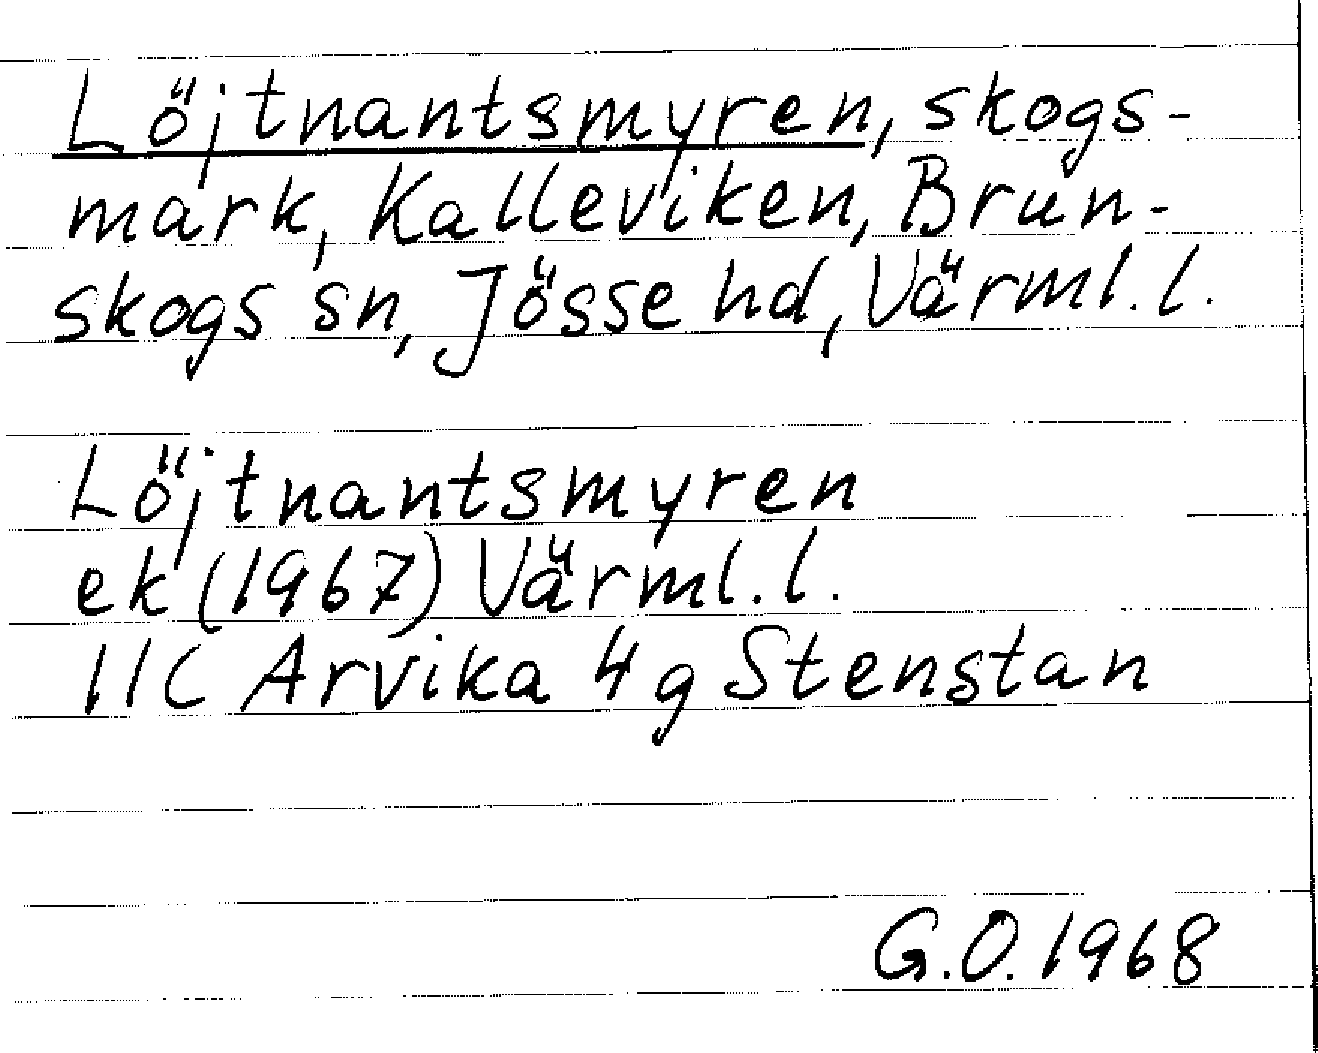 Löjtnantsmyren, skogs-
mark, Kalleviken, Brun-
skogs sn, Jösse hd, Värml. l.
Löjtnantsmyren
ek (1967) Värml. l.
11C Arvika 4g Stenstan
G.O. 1968